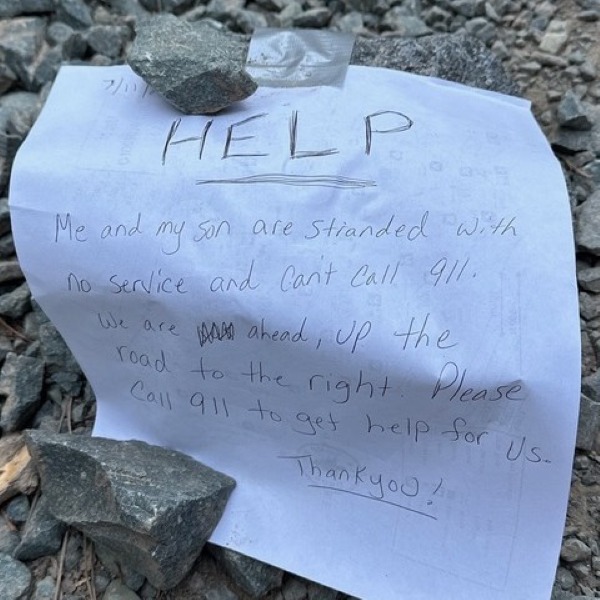 7/11/
HELP
Me and my son are stranded with
no service and can't call 911.
We are ahead, up the
road to the right. Please
Call 911 to get help for us.
Thankyou!